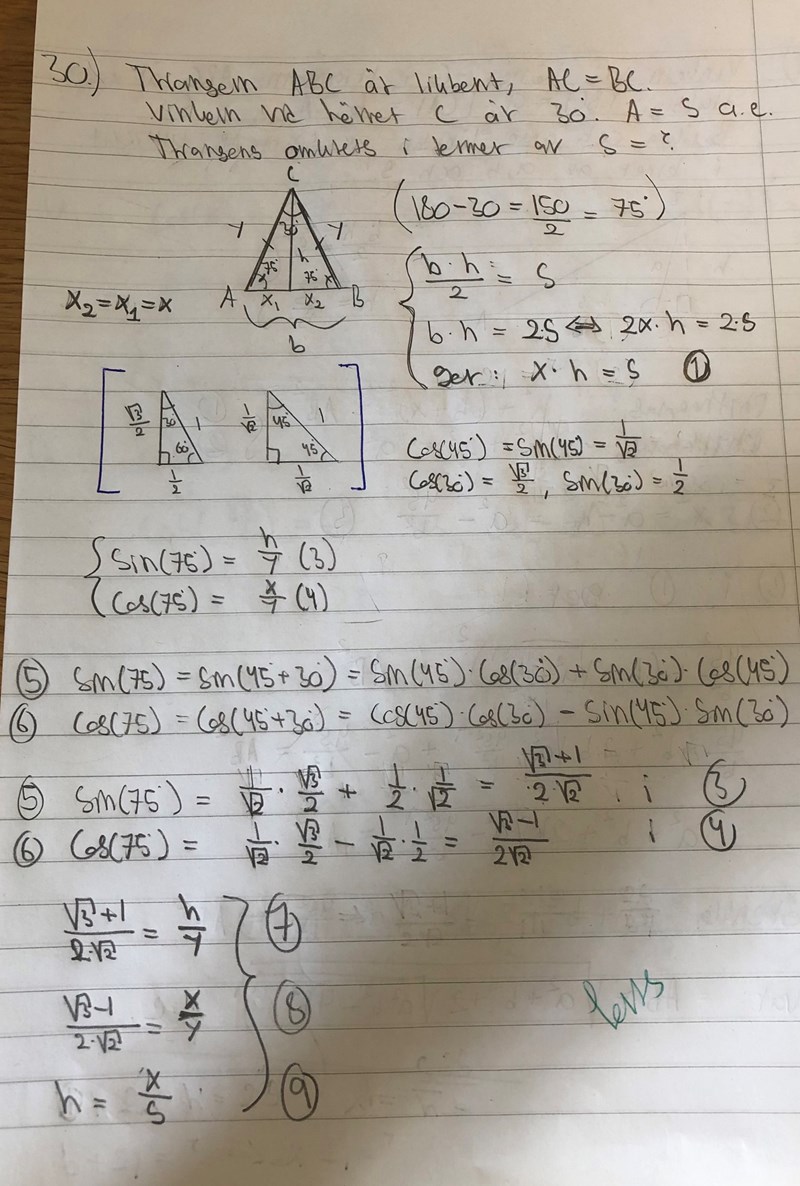 30.) Triangeln ABC är likbent, AC = BC.
Vinkeln vid hörnet C är 30°. A = S a.e.
Triangens omkrets i termer av S = ?
C
(180-30 = 150/2 = 75°)
y 30° y
h
75° 75°
x x
A x₁ x₂ B
b
x₂ = x₁ = x
{ b·h/2 = S
b·h = 2S ⟺ 2x·h = 2·S
ger: x·h = S ①
[ √3/2 30 1 60° 1/2 1/√2 45 1 45° 1/√2 ]
Cos(45°) = Sin(45) = 1/√2
Cos(30) = √3/2, Sin(30) = 1/2
{ Sin(75°) = h/y (3)
Cos(75°) = x/y (4)
⑤ Sin(75) = Sin(45+30) = Sin(45)·Cos(30) + Sin(30)·Cos(45)
⑥ Cos(75°) = Cos(45+30) = Cos(45)·Cos(30) - Sin(45)·Sin(30)
⑤ Sin(75°) = 1/√2 · √3/2 + 1/2 · 1/√2 = √3+1/2√2 i ③
⑥ Cos(75°) = 1/√2 · √3/2 - 1/√2 · 1/2 = √3-1/2√2 i ④
√3+1/2·√2 = h/y ⑦
√3-1/2·√2 = x/y ⑧
h = x/S ⑨